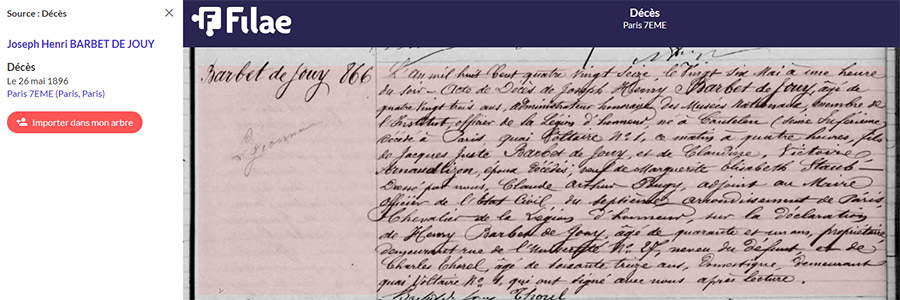 Source : Décès
×
Joseph Henri BARBET DE JOUY
Décès
Le 26 mai 1896
Paris 7EME (Paris, Paris)
Importer dans mon arbre
Filae
Décès
Paris 7EME
Barbet de Jouy 866
L'An mil huit Cent quatre vingt Seize, le Vingt six Mai à une heure
du soir — Acte de Décès de Joseph Henry Barbet de Jouy, âgé de
quatre vingt trois ans, administrateur honoraire des Musées Nationaux, membre de
l'Institut, officier de la Légion d'honneur né à Canteleu (Seine Inférieure
décédé à Paris quai Voltaire No 1, ce matin à quatre heures, fils
de Jacques Juste Barbet de Jouy, et de Claudine, Victoire
époux décédés, veuf de Marguerite Elisabeth Staub —
Dressé par nous, Claude Arthur adjoint au Maire
officier de l'Etat Civil du septième arrondissement de Paris
Chevalier de la Légion d'honneur sur la déclaration
de Henry Barbet de Jouy, âgé de quarante et un ans, propriétaire
demeurant rue de l'Université No neveu du défunt, et de
Charles Thorel, âgé de soixante treize ans, domestique, demeurant
quai Voltaire No 1, qui ont signé avec nous après lecture.